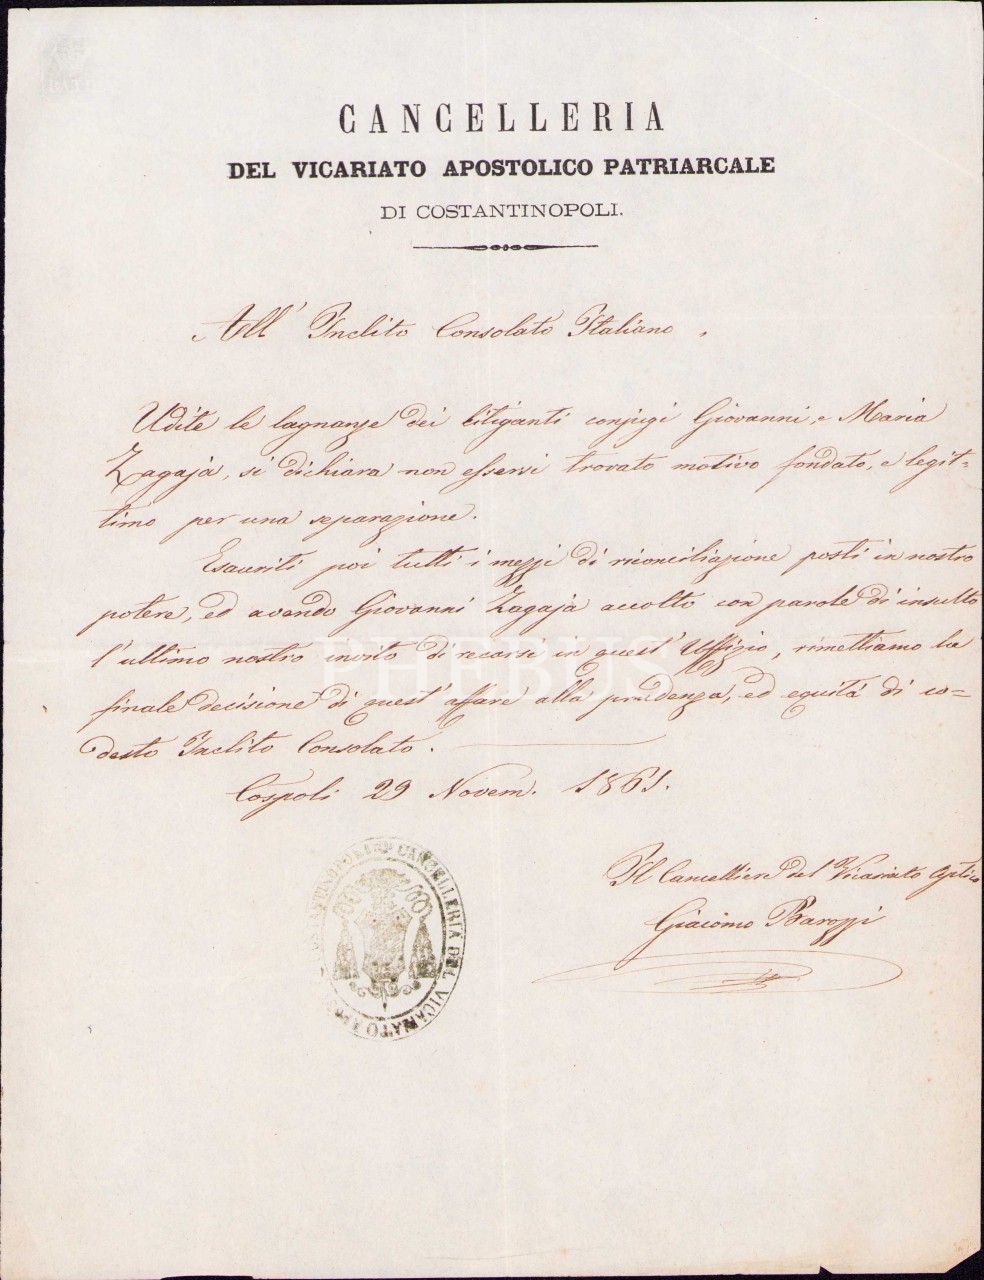 CANCELLERIA
DEL VICARIATO APOSTOLICO PATRIARCALE
DI COSTANTINOPOLI.
All' Inclito Consolato Italiano.
Udite le lagnanze dei litiganti conjugi Giovanni, e Maria
Zagaja, si dichiara non essersi trovato motivo fondato, e legit-
timo per una separazione.
Esauriti poi tutti i mezzi di riconciliazione posti in nostro
potere, ed avendo Giovanni Zagaja accolto con parole di insulto
l'ultimo nostro invito di recarsi in quest'Uffizio, rimettiamo la
finale decisione di quest'affare alla prudenza, ed equità di co-
desto Inclito Consolato.
Cospoli 29 Novem. 1861.
Il Cancelliere del Vicariato Aplico
Giacomo Barozzi
CANCELLERIA DEL VICARIATO
PHEBUS